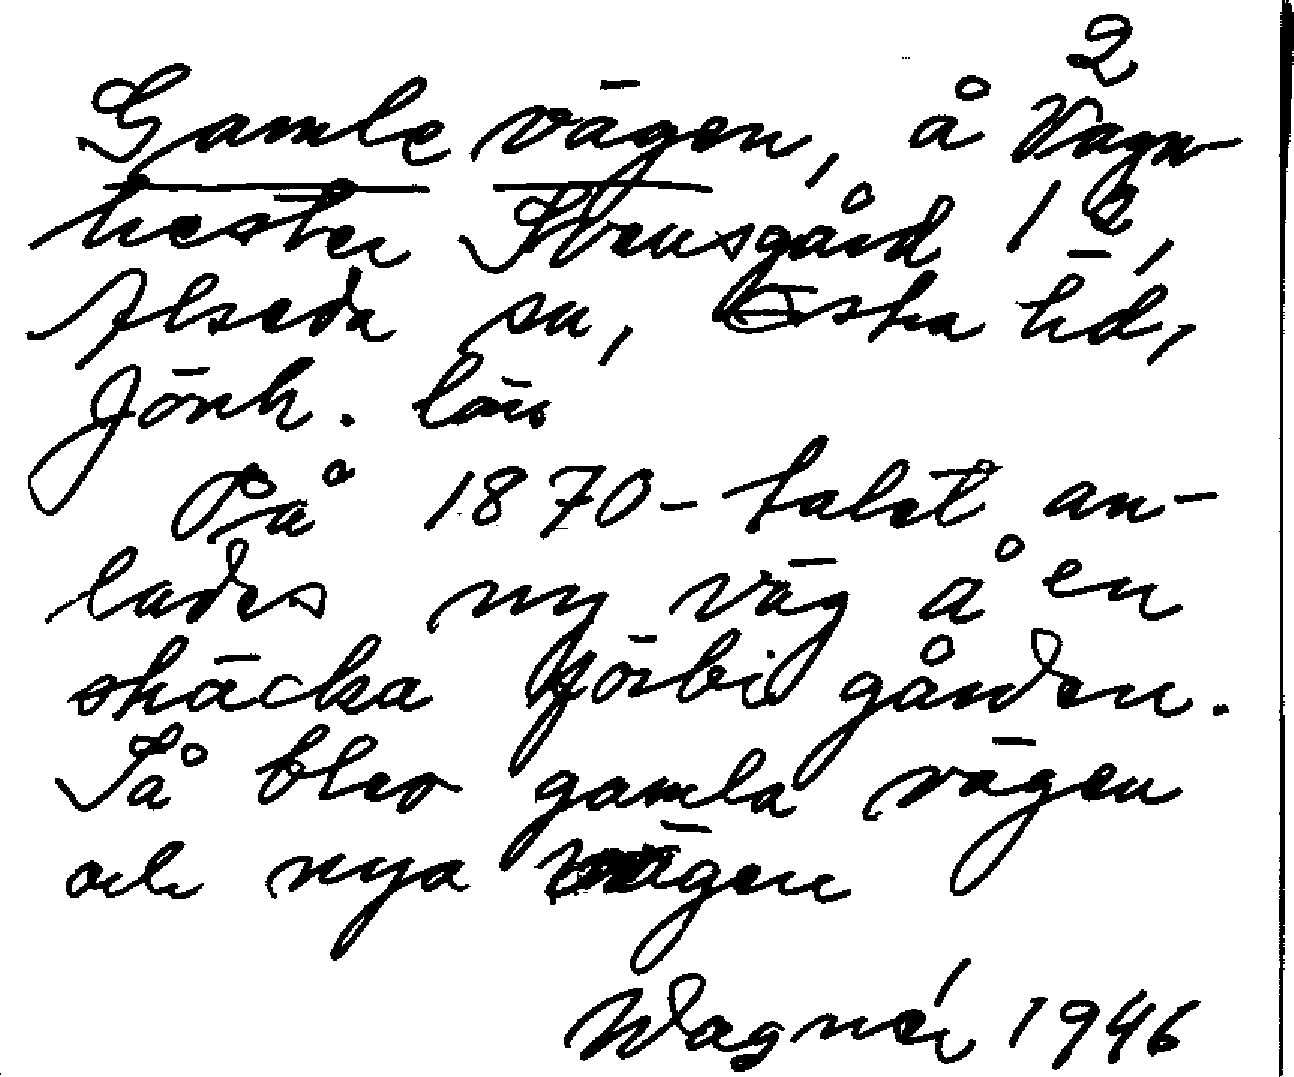 2
Gamle vägen, å Vagn-
hester Svensgård 1 2,
Alseda sn, Östra hd,
Jönk. län
På 1870-talet an-
lades ny väg å en
sträcka förbi gården.
Så blev gamla vägen
och nya vägen
Wagnér 1946